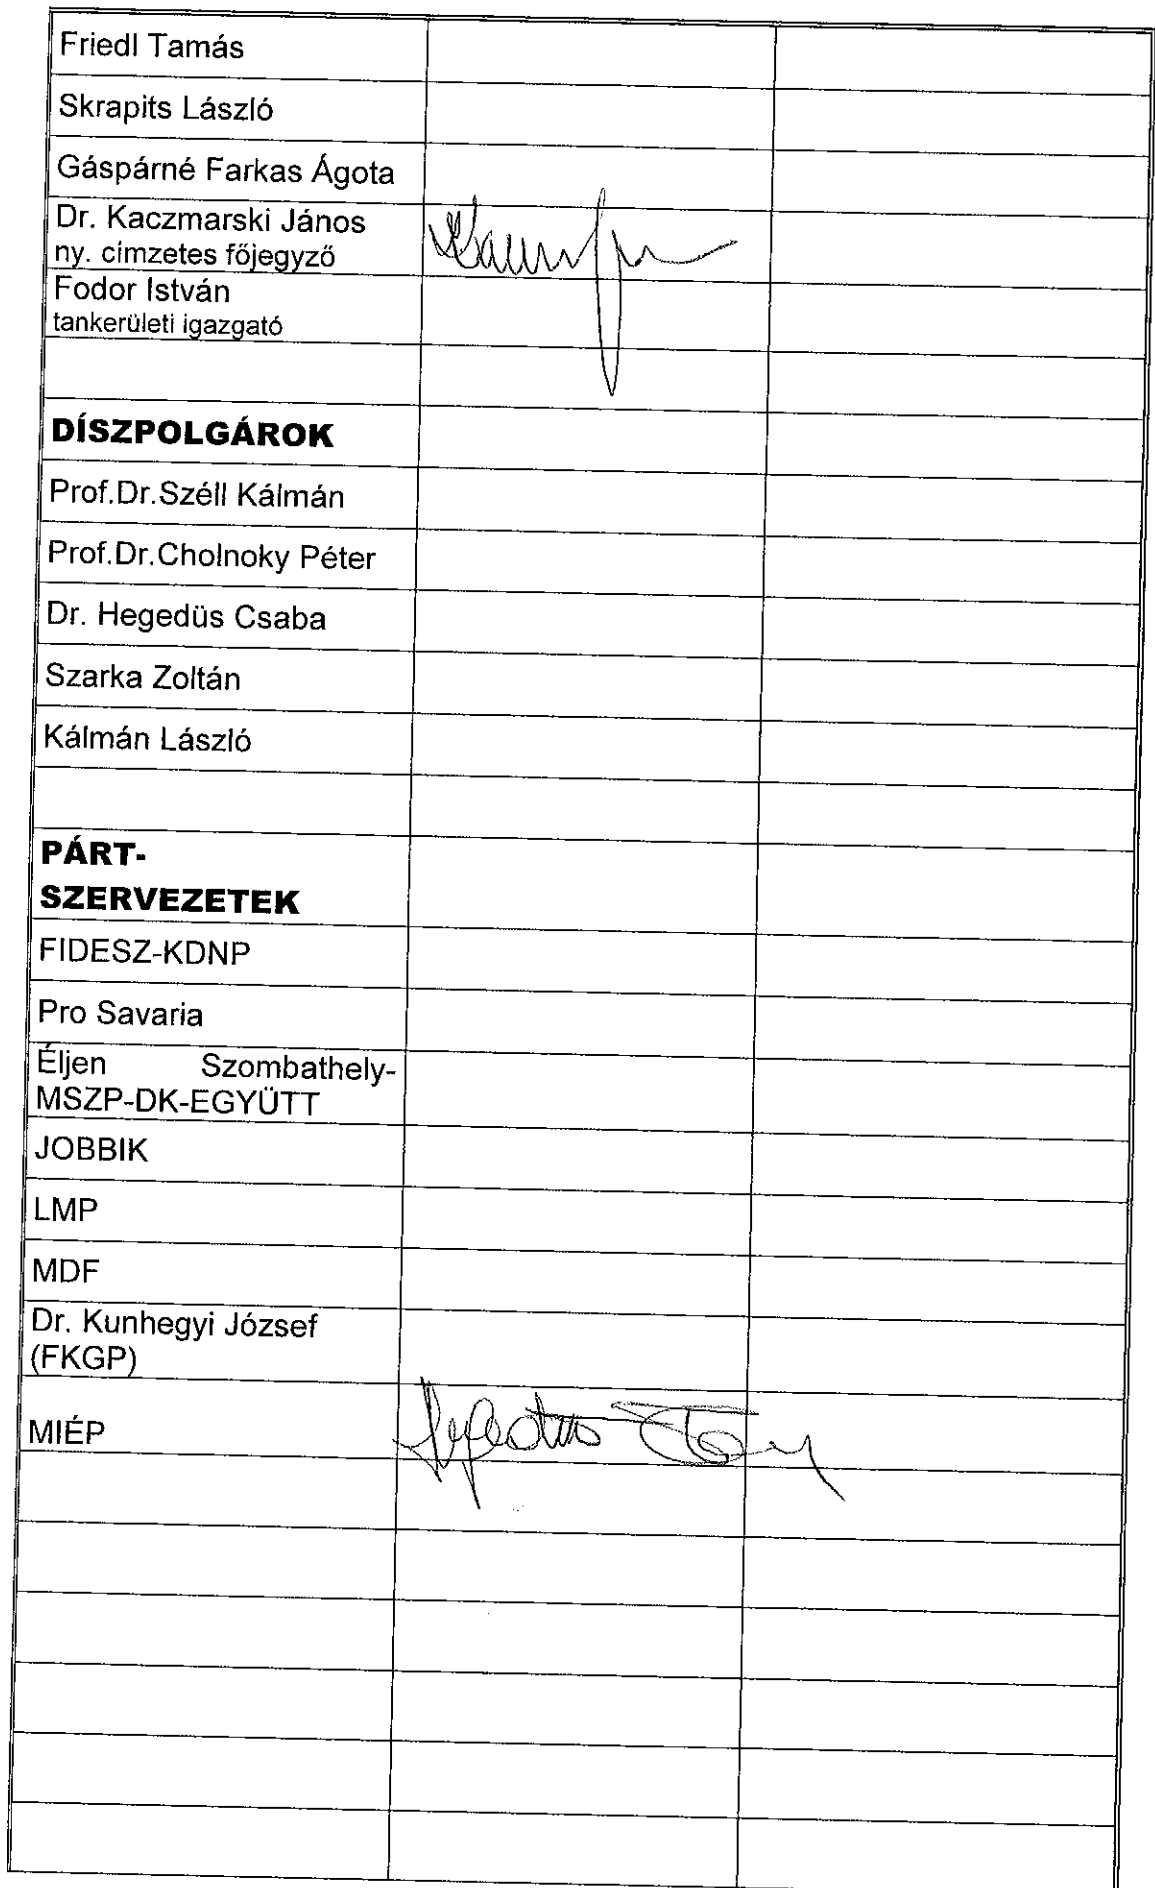 Friedl Tamás
Skrapits László
Gáspárné Farkas Ágota
Dr. Kaczmarski János
ny. címzetes főjegyző
Fodor István
tankerületi igazgató
DÍSZPOLGÁROK
Prof.Dr.Széll Kálmán
Prof.Dr.Cholnoky Péter
Dr. Hegedüs Csaba
Szarka Zoltán
Kálmán László
PÁRT-
SZERVEZETEK
FIDESZ-KDNP
Pro Savaria
Éljen Szombathely-
MSZP-DK-EGYÜTT
JOBBIK
LMP
MDF
Dr. Kunhegyi József
(FKGP)
MIÉP